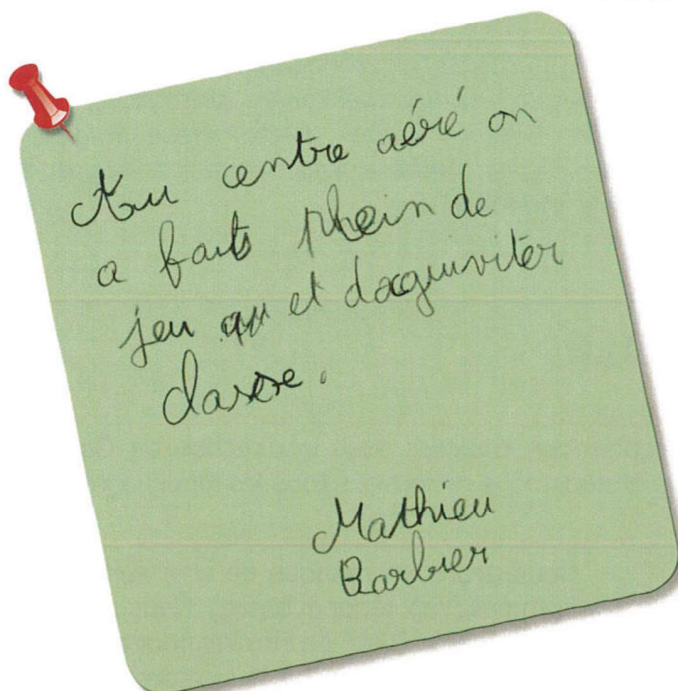 Au centre aéré on
a faits plein de
jeu et daguiviter
classe.
Mathieu
Barbier